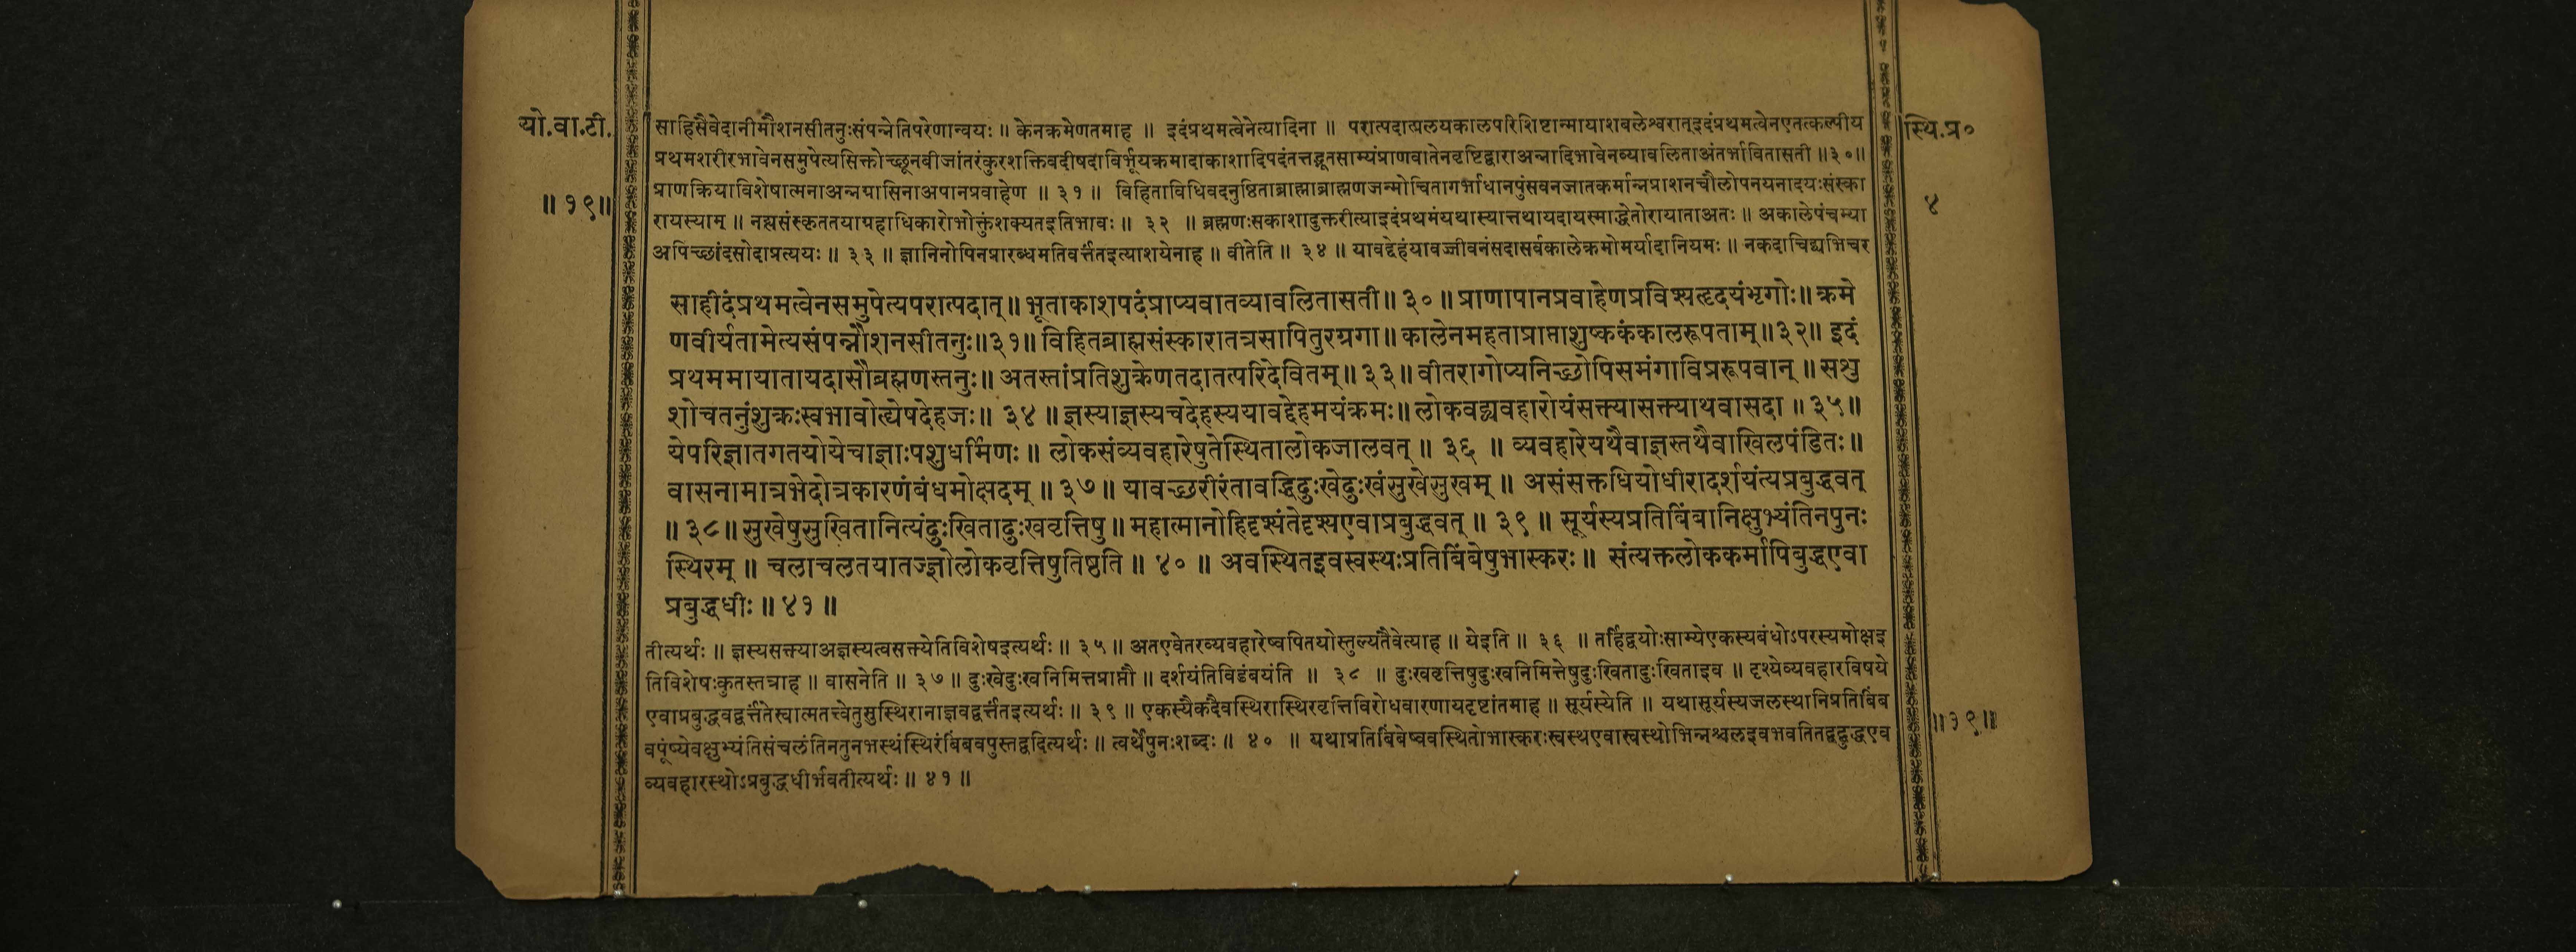 यो.वा.टी.
॥ १९॥
स्थि.प्र०
४
साहिसैवेदानीमौशनसीतनुःसंपन्नेतिपरेणान्वयः ॥ केनक्रमेणतमाह ॥ इदंप्रथमत्वेनेत्यादिना ॥ परात्पदात्प्रलयकालपरिशिष्टान्मायाशबलेश्वरात्इदंप्रथमत्वेनएतत्कल्पीय
प्रथमशरीरभावेनसमुपेत्यसिक्तोच्छूनबीजांतरंकुरशक्तिवदीषदाविर्भूयक्रमादाकाशादिपदंतत्तद्भूतसाम्यंप्राणवातेनवृष्टिद्वाराअन्नादिभावेनव्यावलिताअंतर्भावितासती ॥३०॥
प्राणक्रियाविशेषात्मनाअन्नग्रासिनाअपानप्रवाहेण ॥ ३१ ॥ विहिताविधिवदनुष्ठिताब्राह्माब्राह्मणजन्मोचितागर्भाधानपुंसवनजातकर्मान्नप्राशनचौलोपनयनादयःसंस्का
रायस्याम् ॥ नह्यसंस्कृततयाग्रहाधिकारोभोक्तुंशक्यतइतिभावः ॥ ३२ ॥ ब्रह्मणःसकाशादुक्तरीत्याइदंप्रथमंयथास्यात्तथायदायस्माद्धेतोरायाताअतः ॥ अकालेपंचम्या
अपिच्छांदसोदाप्रत्ययः ॥ ३३ ॥ ज्ञानिनोपिनप्रारब्धमतिवर्त्ततइत्याशयेनाह ॥ वीतेति ॥ ३४ ॥ यावद्देहंयावज्जीवनंसदासर्वकालेक्रमोमर्यादानियमः ॥ नकदाचिद्व्यभिचर
साहीदंप्रथमत्वेनसमुपेत्यपरात्पदात् ॥ भूताकाशपदंप्राप्यवातव्यावलितासती ॥ ३० ॥ प्राणापानप्रवाहेणप्रविश्यहृदयंभृगोः ॥ क्रमे
णवीर्यतामेत्यसंपन्नौशनसीतनुः ॥३१॥ विहितब्राह्मसंस्कारातत्रसापितुरग्रगा ॥ कालेनमहताप्राप्ताशुष्ककंकालरूपताम् ॥३२॥ इदं
प्रथममायातायदासौब्रह्मणस्तनुः ॥ अतस्तांप्रतिशुक्रेणतदातत्परिदेवितम् ॥ ३३ ॥ वीतरागोप्यनिच्छोपिसमंगाविप्ररूपवान् ॥ सशु
शोचतनुंशुक्रःस्वभावोत्येषदेहजः ॥ ३४ ॥ ज्ञस्याज्ञस्यचदेहस्ययावद्देहमयंक्रमः ॥ लोकवद्व्यवहारोयंसक्त्यासक्त्याथवासदा ॥ ३५॥
येपरिज्ञातगतयोयेचाज्ञाःपशुधर्मिणः ॥ लोकसंव्यवहारेषुतेस्थितालोकजालवत् ॥ ३६ ॥ व्यवहारेयथैवाज्ञस्तथैवाखिलपंडितः ॥
वासनामात्रभेदोत्रकारणंबंधमोक्षदम् ॥ ३७ ॥ यावच्छरीरंतावद्धिदुःखेदुःखंसुखेसुखम् ॥ असंसक्तधियोधीरादर्शयंत्यप्रबुद्धवत्
॥ ३८ ॥ सुखेषुसुखितानित्यंदुःखितादुःखवृत्तिषु ॥ महात्मानोहिदृश्यंतेदृश्यएवाप्रबुद्धवत् ॥ ३९ ॥ सूर्यस्यप्रतिबिंबानिक्षुभ्यंतिनपुनः
स्थिरम् ॥ चलाचलतयातज्ज्ञोलोकवृत्तिषुतिष्ठति ॥ ४० ॥ अवस्थितइवस्वस्थःप्रतिबिंबेषुभास्करः ॥ संत्यक्तलोककर्मापिबुद्धएवा
प्रबुद्धधीः ॥ ४१ ॥
तीत्यर्थः ॥ ज्ञस्यसक्त्याअज्ञस्यत्वसक्त्येतिविशेषइत्यर्थः ॥ ३५ ॥ अतएवेतरव्यवहारेष्वपितयोस्तुल्यतैवेत्याह ॥ येइति ॥ ३६ ॥ तर्हिद्वयोःसाम्येएकस्यबंधोऽपरस्यमोक्षइ
तिविशेषःकुतस्तत्राह ॥ वासनेति ॥ ३७ ॥ दुःखेदुःखनिमित्तप्राप्तौ ॥ दर्शयंतिविडंबयंति ॥ ३८ ॥ दुःखवृत्तिषुदुःखनिमित्तेषुदुःखितादुःखिताइव ॥ दृश्येव्यवहारविषये
एवाप्रबुद्धवद्वर्त्तंतेस्वात्मतत्त्वेतुसुस्थिरानाज्ञवद्वर्त्तंतइत्यर्थः ॥ ३९ ॥ एकस्यैकदैवस्थिरास्थिरवृत्तिविरोधवारणायदृष्टांतमाह ॥ सूर्यस्येति ॥ यथासूर्यस्यजलस्थानिप्रतिबिंब
वपूंष्येवक्षुभ्यंतिसंचलंतिनतुनभस्थंस्थिरंबिंबवपुस्तद्वदित्यर्थः ॥ त्वर्थेपुनःशब्दः ॥ ४० ॥ यथाप्रतिबिंबेष्ववस्थितोभास्करःस्वस्थएवास्वस्थोभिन्नश्चलइवभवतितद्वद्बुद्धएव
व्यवहारस्थोऽप्रबुद्धधीर्भवतीत्यर्थः ॥ ४१ ॥
॥१९॥